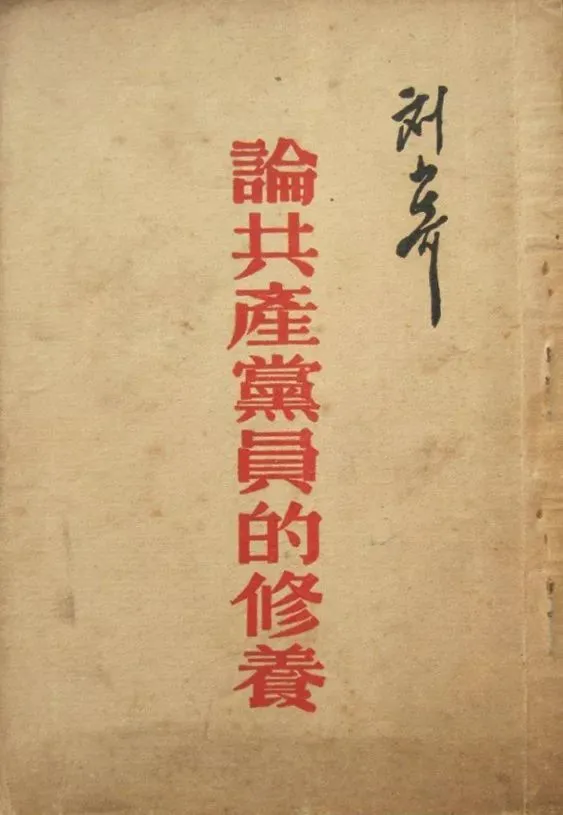 刘少奇
論共產黨員的修養